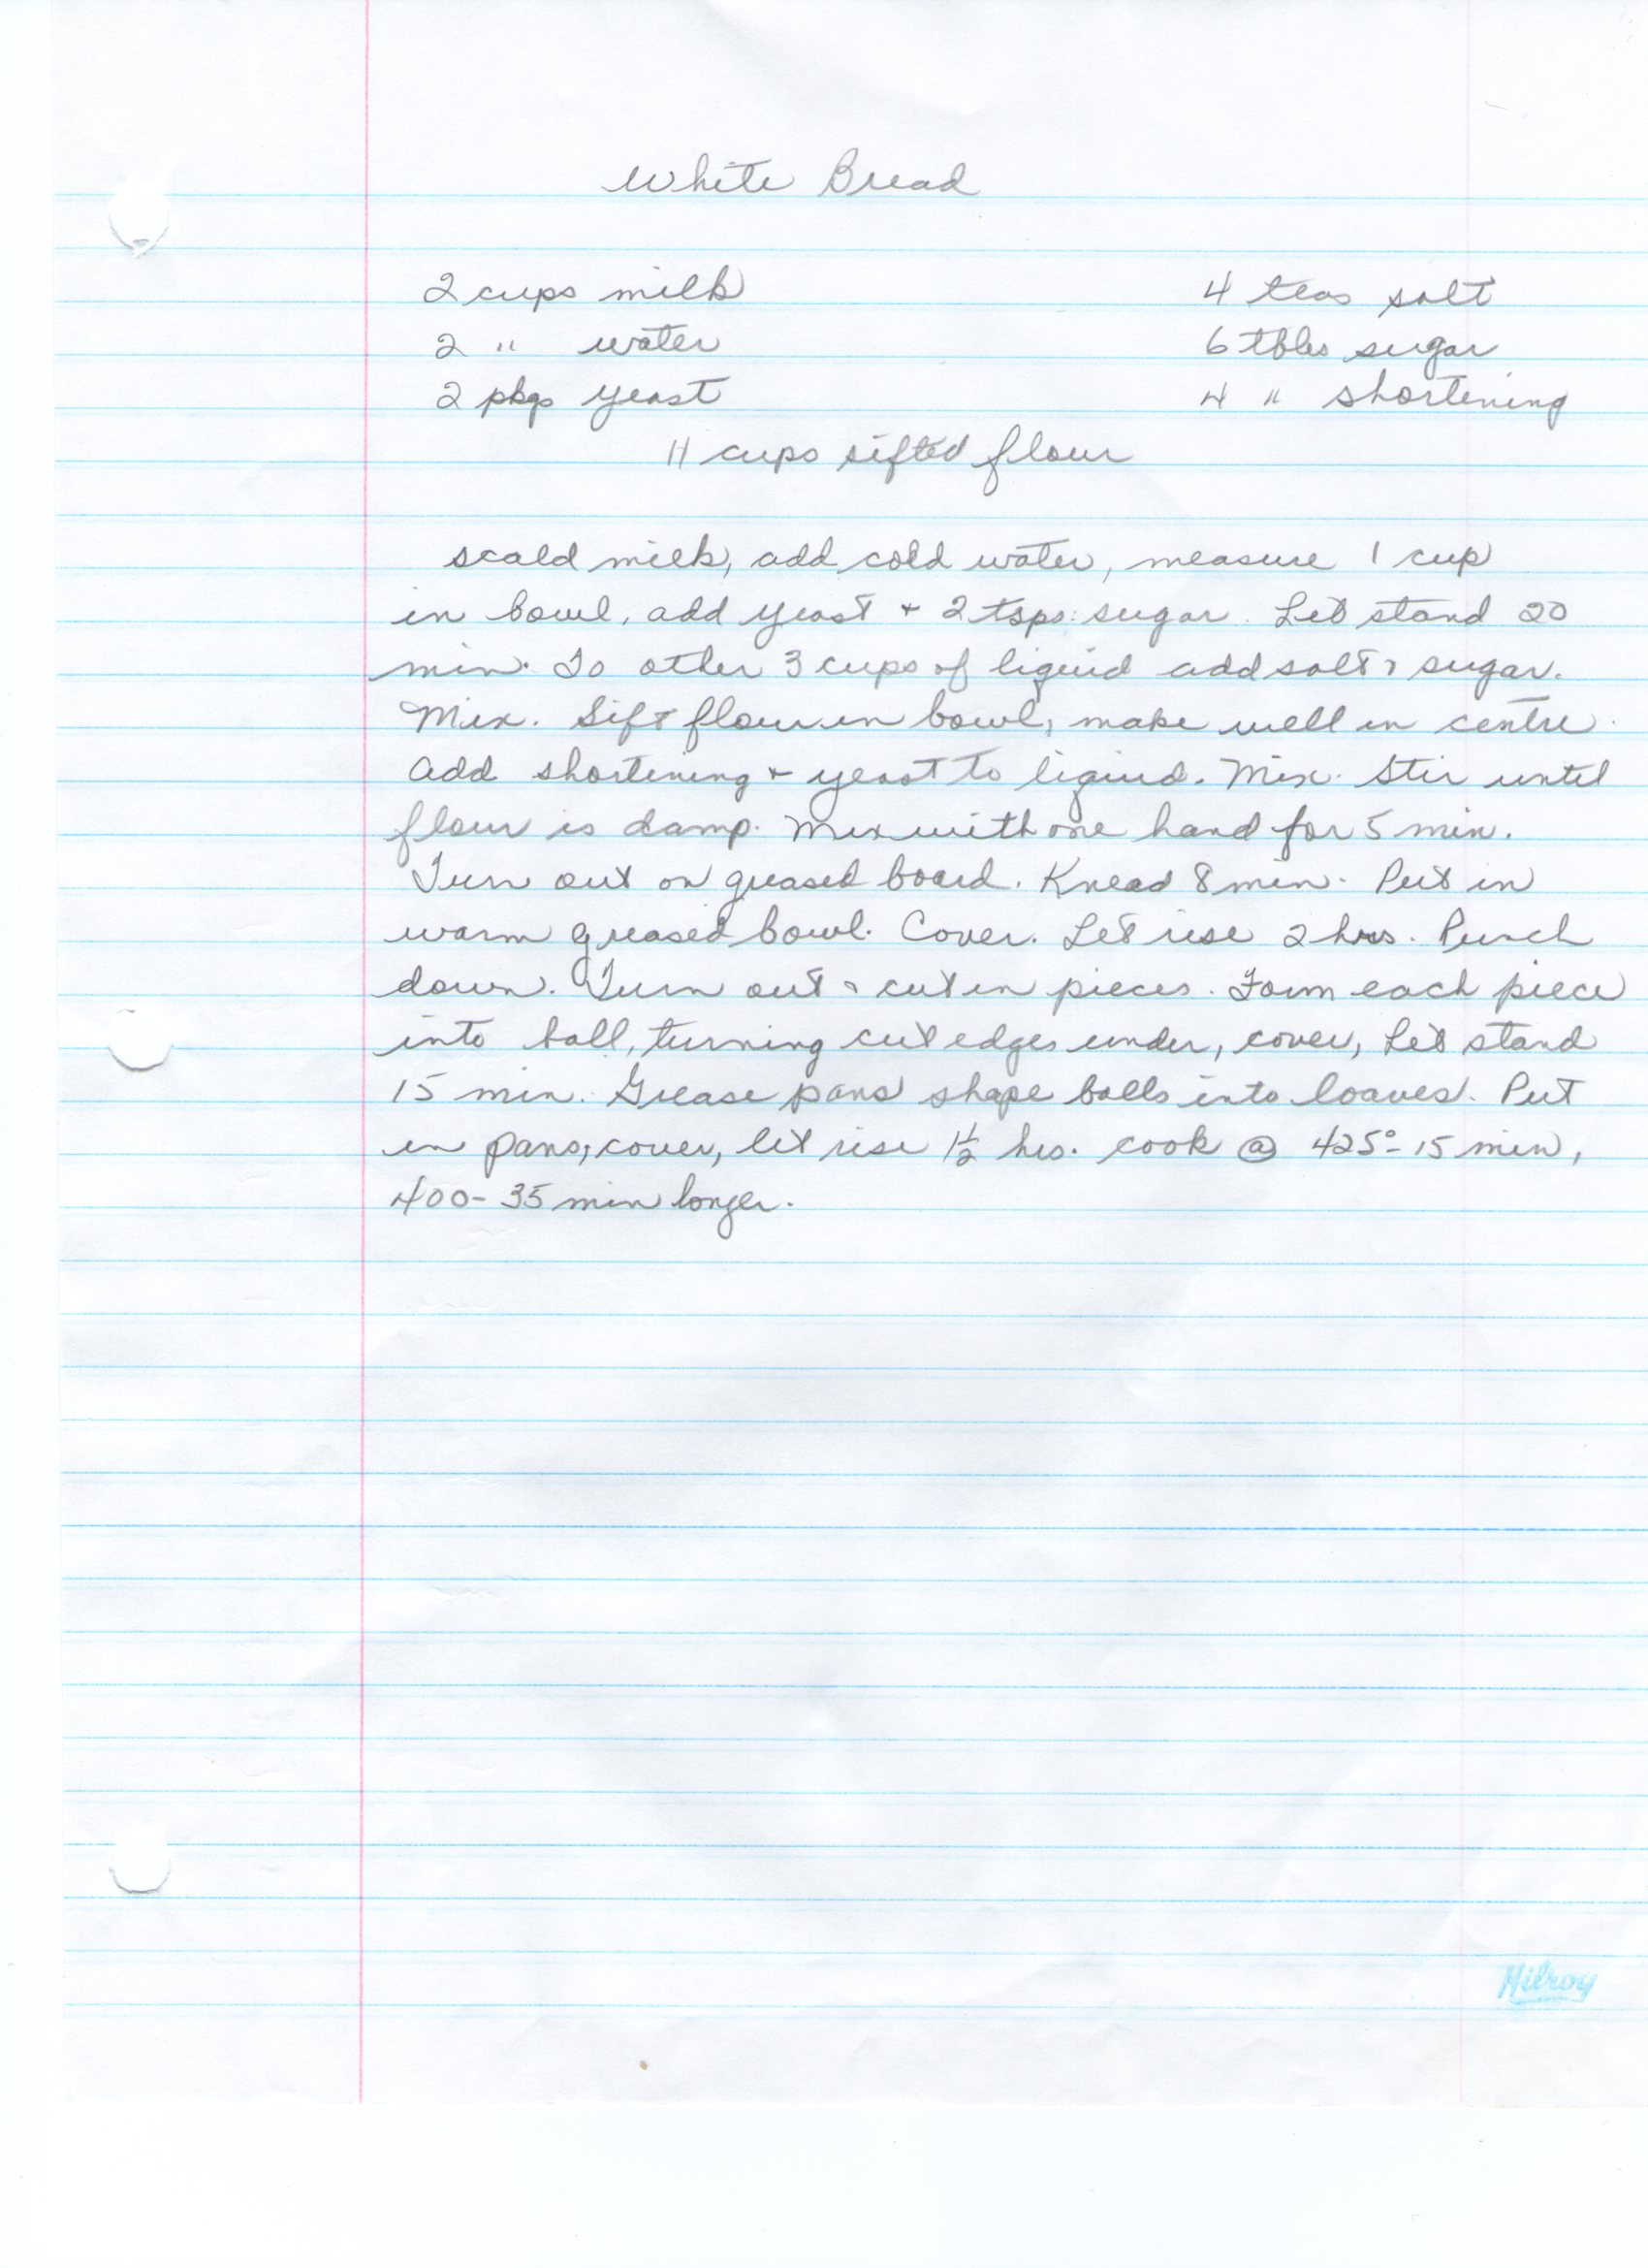 White Bread
2 cups milk 4 teas salt
2 " water 6 tbles sugar
2 pkgs yeast 4 " shortening
11 cups sifted flour
scald milk, add cold water, measure 1 cup
in bowl, add yeast + 2 tsps. sugar. Let stand 20
min. To other 3 cups of liquid add salt & sugar.
Mix. Sift flour in bowl, make well in centre.
Add shortening + yeast to liquid. Mix. Stir until
flour is damp. Mix with one hand for 5 min.
Turn out on greased board. Knead 8 min. Put in
warm greased bowl. Cover. Let rise 2 hrs. Punch
down. Turn out & cut in pieces. Form each piece
into ball, turning cut edges under, cover, Let stand
15 min. Grease pans shape balls into loaves. Put
in pans, cover, let rise 1½ hrs. cook @ 425° - 15 min,
400 - 35 min longer.
Hilroy